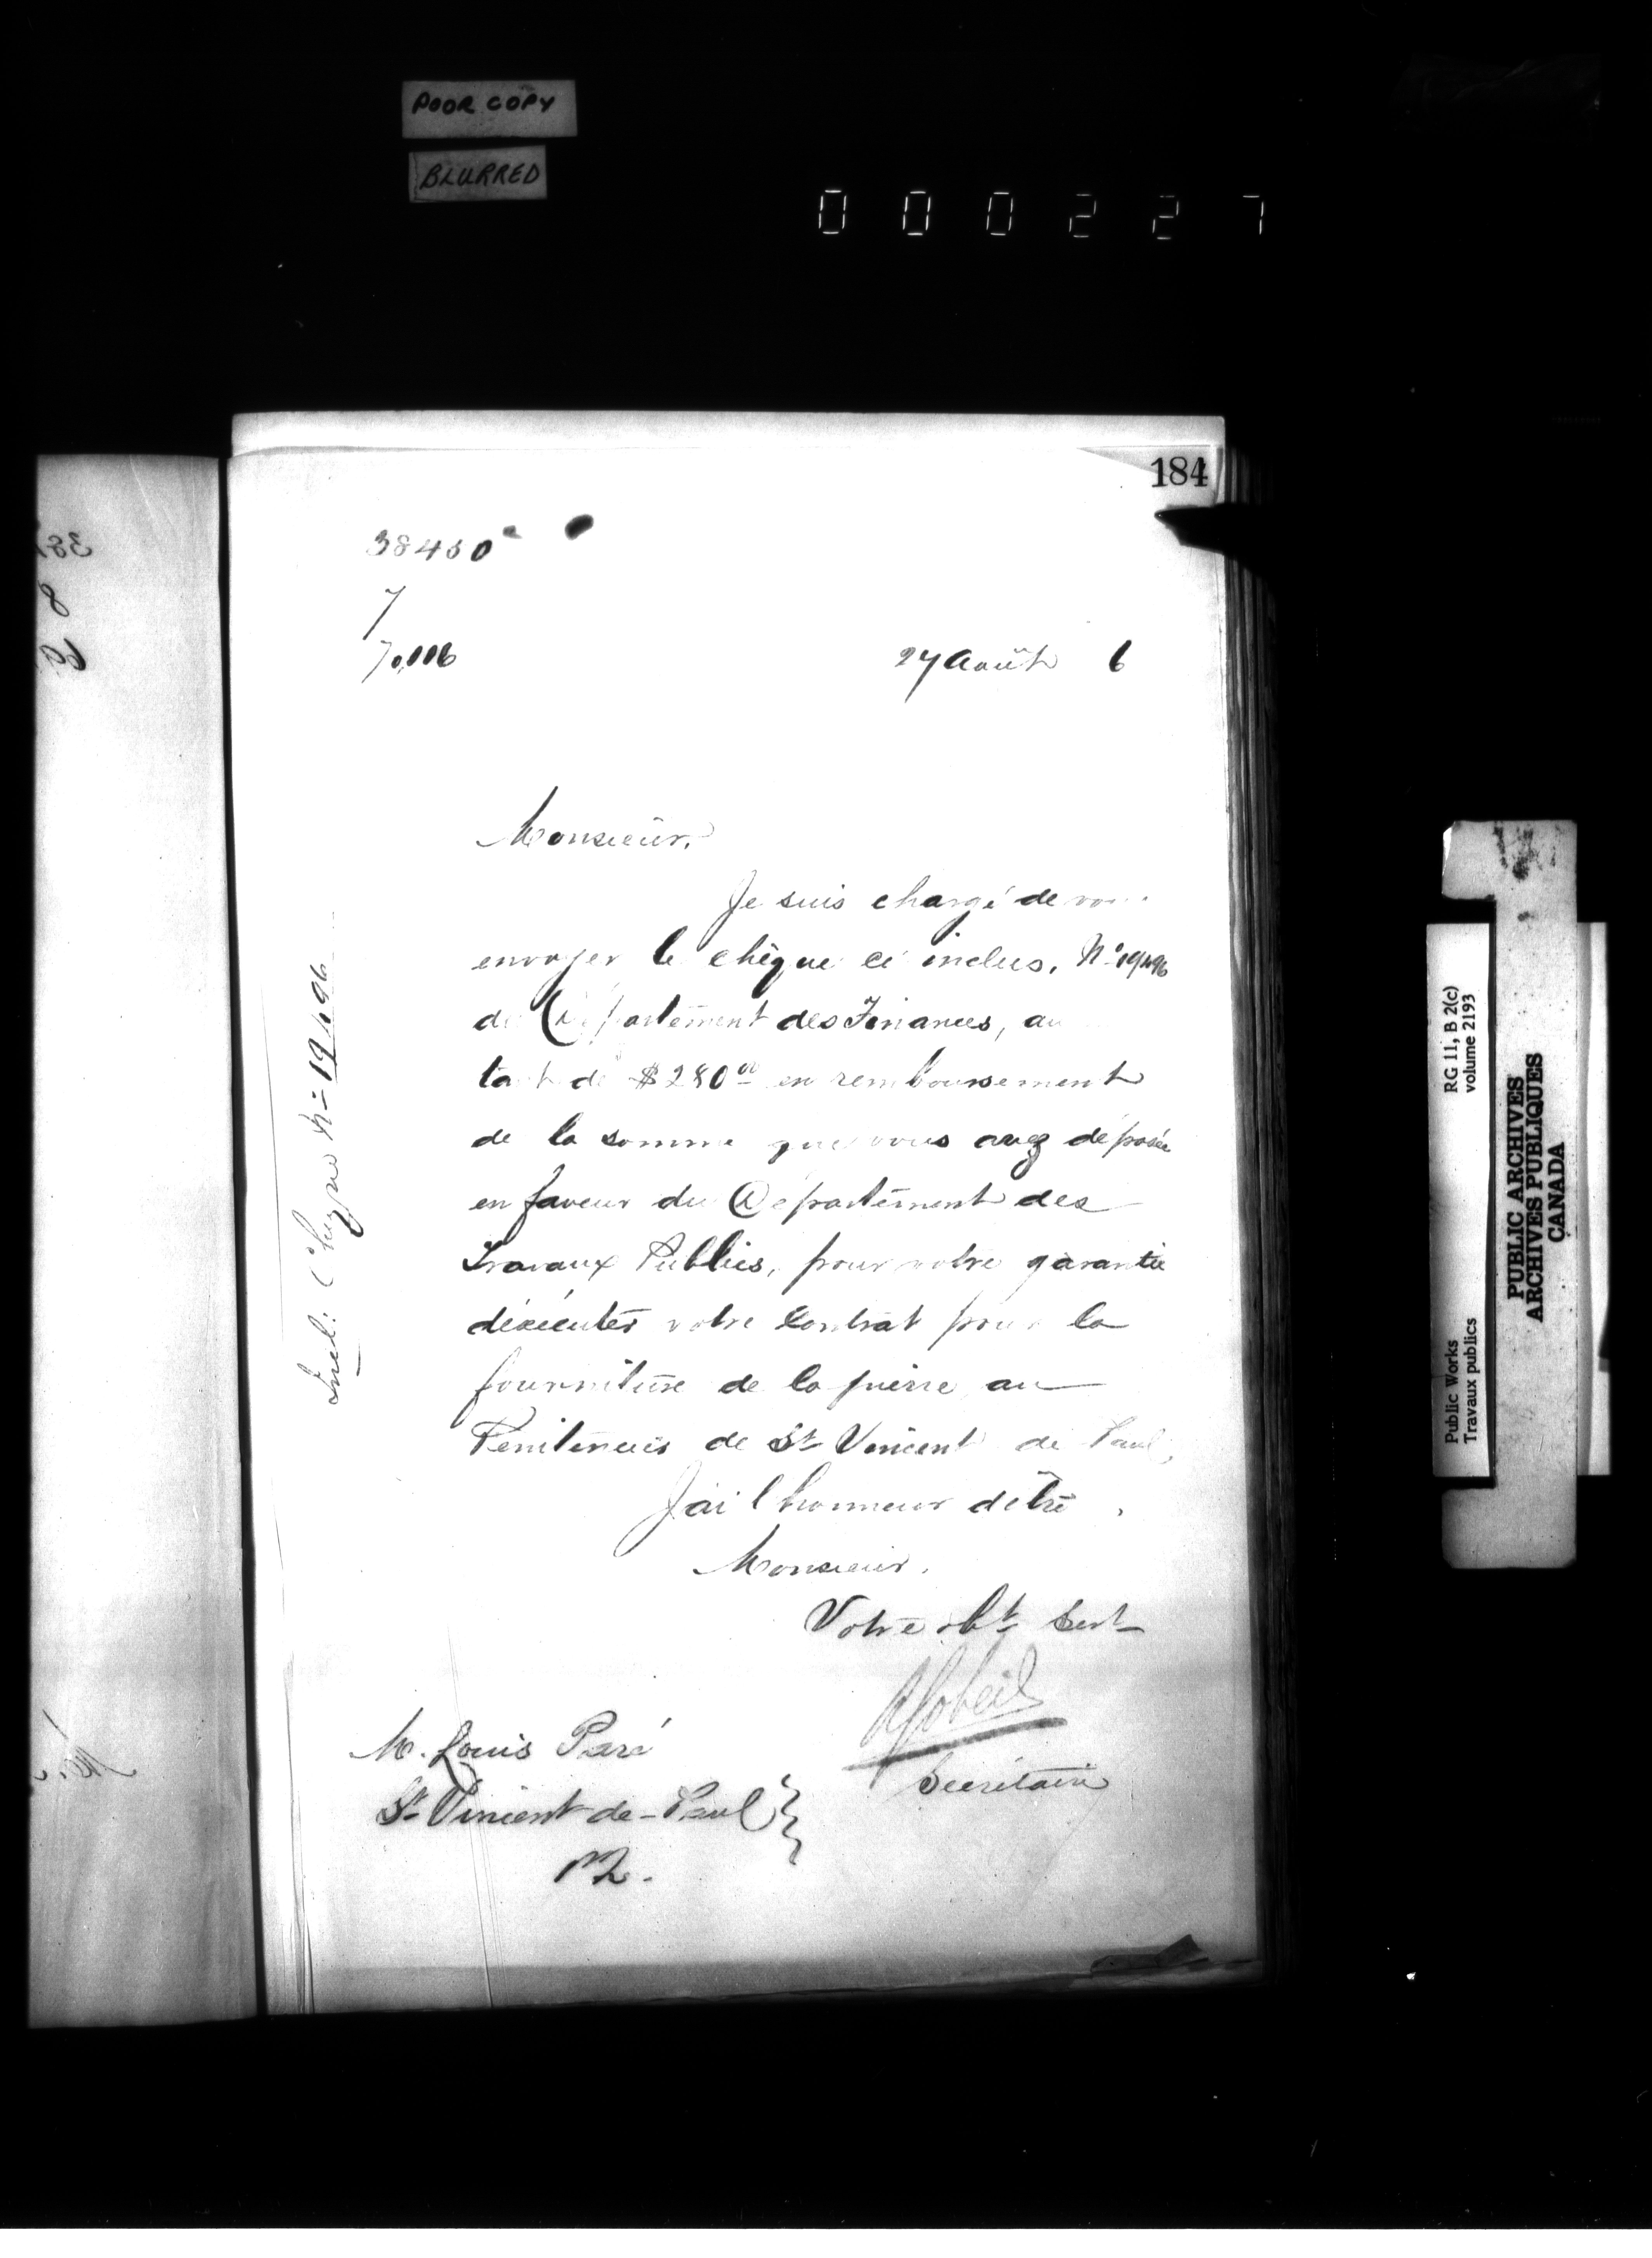 POOR COPY
BLURRED
000227
184
38450
7
70,006
27 Août 6
Monsieur,
Je suis chargé de
envoyer le chèque ci inclus, No 19496
du Département des Finances, au
de $280 00 en remboursement
de la somme que vous avez déposée
en faveur du Département des
Travaux Publics, pour votre garantie
d'exécuter votre contrat pour la
fourniture de la pierre au
Pénitencier de St Vincent de Paul
J'ai l'honneur d'être,
Monsieur,
Votre obt Sert
A Gobeil
Secrétaire
M. Louis Paré
St Vincent-de-Paul
P2.
Incl: Chèque No 19496
RG 11, B 2(c)
volume 2193
Public Works
Travaux publics
PUBLIC ARCHIVES
ARCHIVES PUBLIQUES
CANADA